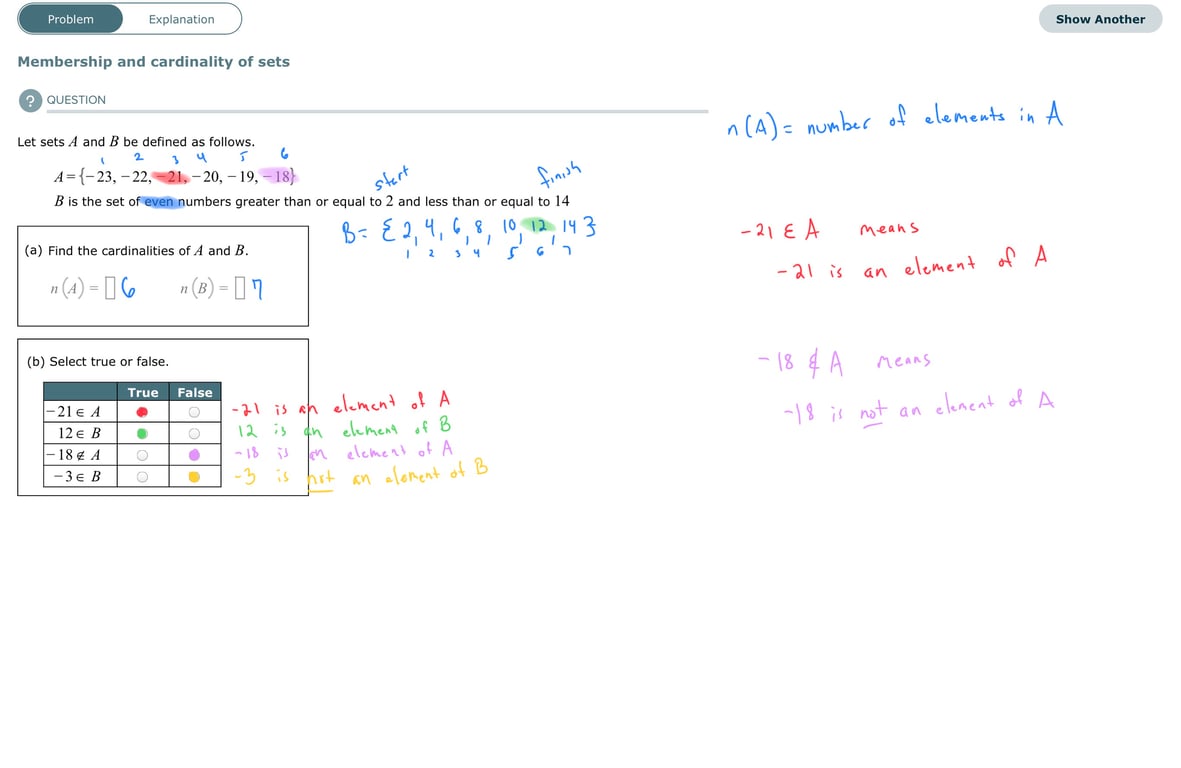 Problem Explanation Show Another
Membership and cardinality of sets
? QUESTION
n(A) = number of elements in A
Let sets A and B be defined as follows.
1 2 3 4 5 6
A={−23, −22, −21, −20, −19, −18}
start finish
B is the set of even numbers greater than or equal to 2 and less than or equal to 14
B = { 2, 4, 6, 8, 10, 12, 14 }
1 2 3 4 5 6 7
(a) Find the cardinalities of A and B.
n(A) = 6 n(B) = 7
-21 ∈ A means
-21 is an element of A
(b) Select true or false.
True False
−21 ∈ A -21 is an element of A
12 ∈ B 12 is an element of B
−18 ∉ A -18 is an element of A
−3 ∈ B -3 is not an element of B
-18 ∉ A means
-18 is not an element of A